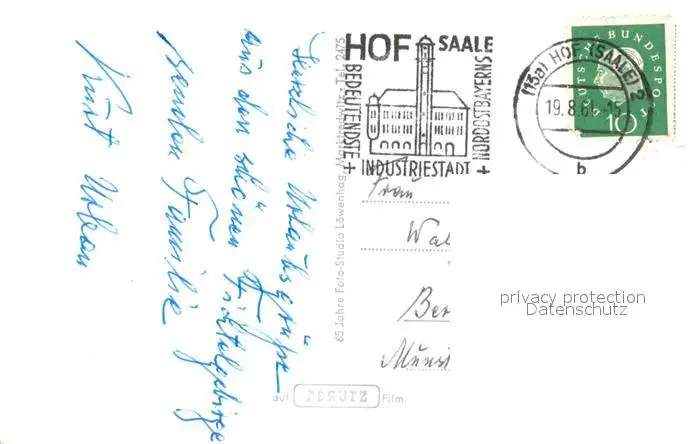 Herzliche Urlaubsgrüße
aus dem schönen Fichtelgebirge
senden Familie
Kurt Urban
65 Jahre Foto-Studio Löwenhag, Marktredwitz - Tel. 2475
HOF SAALE
BEDEUTENDSTE
INDUSTRIESTADT
NORDOSTBAYERNS
(13a) HOF (SAALE) 2
19.8.61.-15
b
DEUTSCHE BUNDESPOST
10
Frau
Wal
Ber
Münst
privacy protection
Datenschutz
auf PERUTZ Film